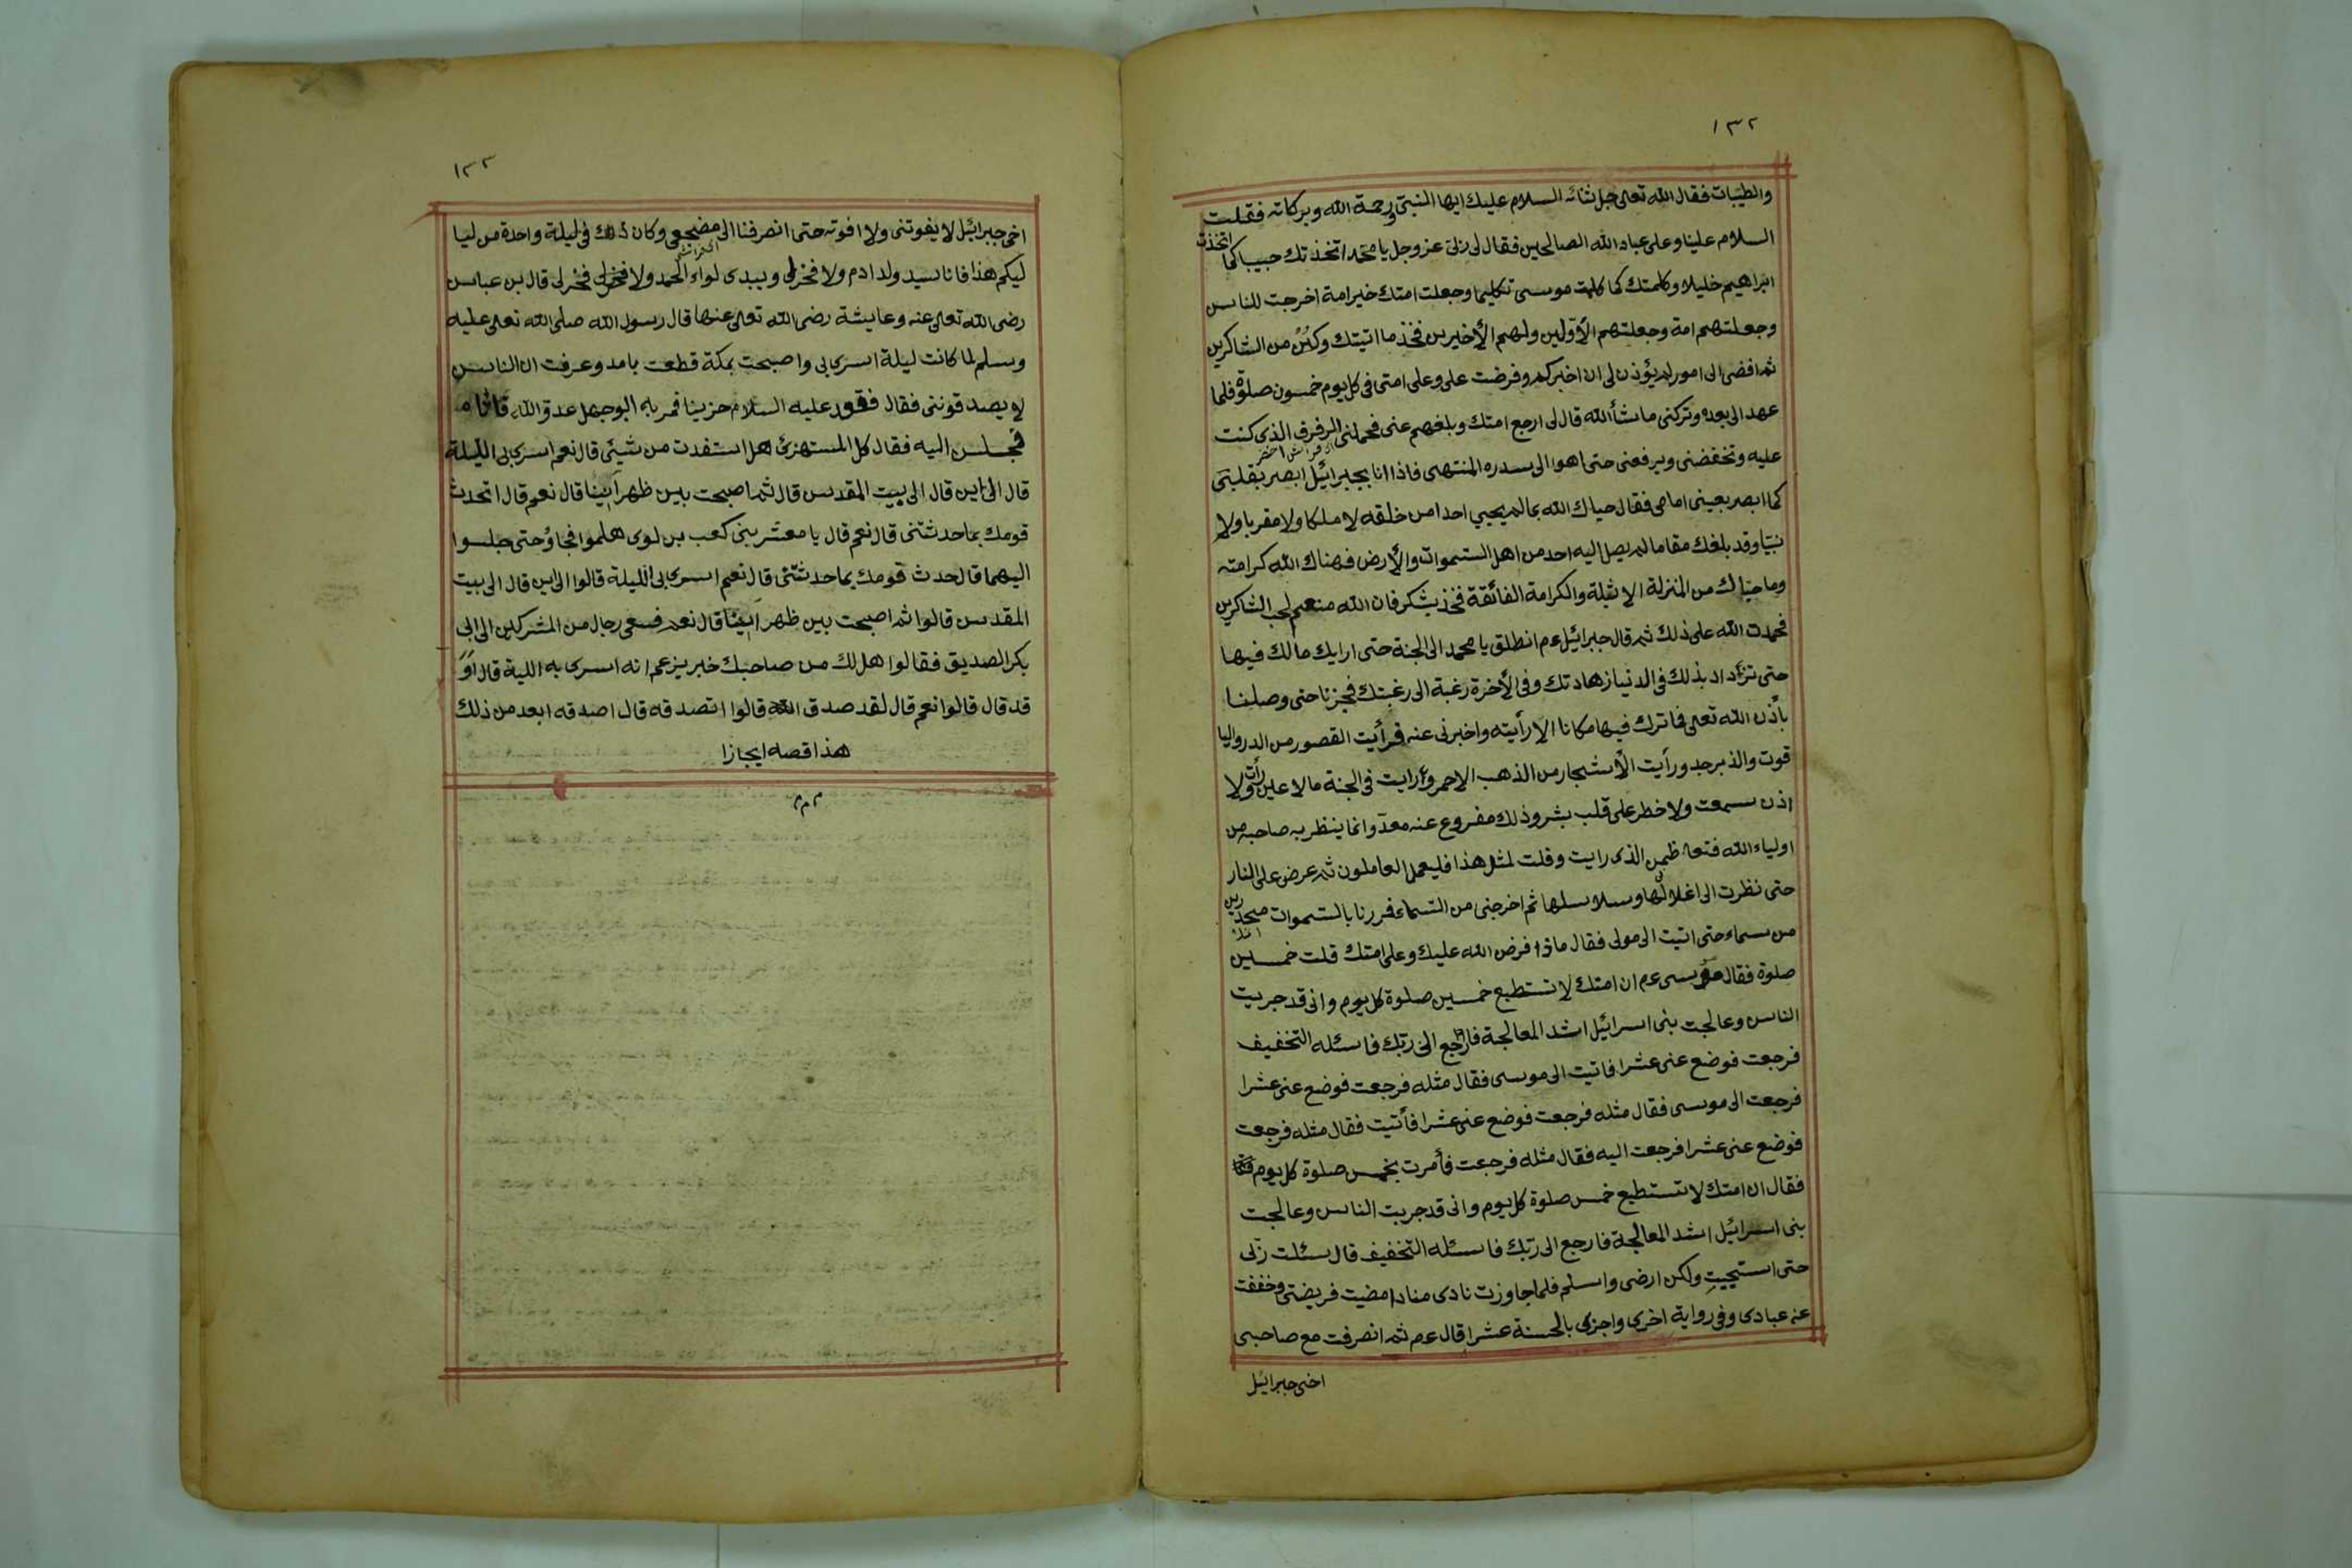 ١٣٢
والطيبات فقال الله تعالى جل ثنائه السلام عليك ايها النبي ورحمة الله وبركاته فقلت
السلام علينا وعلى عباد الله الصالحين فقال لى ربى عز وجل يا محمد اتخذتك حبيبا كما اتخذت
ابراهيم خليلا وكلمتك كما كلمت موسى تكليما وجعلت امتك خير امة اخرجت للناس
وجعلتهم امة وجعلتهم الأولين ولهم الأخيرين فخذ ما اتيتك وكن من الشاكرين
ثم افضى الى امور لم يؤذن لى ان اخبركم وفرضت على وعلى امتى فى كل يوم خمسون صلوة فلما
عهد الى بعده وتركنى ما شأ الله قال لى ارجع امتك وبلغهم عنى فحملنى الرفرف الذى كنت
عليه وتخفضنى ويرفعنى حتى اهوا الى سدره المنتهى فاذا انا بجبرائيل ابصر بقلبى
كما ابصر بعينى امامى فقال حياك الله بما لم يحيي احدا من خلقه لا ملكا ولا مقربا ولا
نبيا وقد بلغك مقاما لم يصل اليه احد من اهل السموات والأرض فهناك الله كرامته
وما حياك من المنزلة الاثيلة والكرامة الفائقة فخذ بشكر فان الله منعم لحب الشاكرين
فحمدت الله على ذلك ثم قال جبرائيل عم انطلق يا محمد الى الجنة حتى ارايك مالك فيها
حتى تزداد بذلك فى الدنيا زهادتك وفى الأخرة رغبة الى رغبتك فجزنا حتى وصلنا
بأذن الله تعالى فما ترك فيها مكانا الا رأيته واخبرنى عنه فرأيت القصور من الدر واليا
قوت والذبرجد ورأيت الأشجار من الذهب الاحمر ورايت فى الجنة مالا عين رأت ولا
اذن سمعت ولا خطر على قلب بشر وذلك مفروع عنه معد وانما ينظر به صاحبه من
اولياء الله فتعاظمن الذى رايت وقلت لمثل هذا فليعمل العاملون ثم عرض على النار
حتى نظرت الى اغلالها وسلاسلها ثم اخرجنى من السماء فررنا بالسموات منحدرين
من سماء حتى اتيت الى مولى فقال ماذا فرض الله عليك وعلى امتك قلت خمسين
صلوة فقال موسى عم ان امتك لا تستطيع خمسين صلوة كل يوم وانى قد جربت
الناس وعالجت بنى اسرائيل اشد المعالجة فارجع الى ربك فاسئله التخفيف
فرجعت فوضع عنى عشرا فاتيت الى موسى فقال مثله فرجعت فوضع عنى عشرا
فرجعت الى موسى فقال مثله فرجعت فوضع عنى عشرا فأتيت فقال مثله فرجعت
فوضع عنى عشرا فرجعت اليه فقال مثله فرجعت فأمرت بخمس صلوة كل يوم
فقال ان امتك لا تستطيع خمس صلوة كل يوم وانى قد جربت الناس وعالجت
بنى اسرائيل اشد المعالجة فارجع الى ربك فاسئله التخفيف قال سئلت ربى
حتى استحييت ولكن ارضى واسلم فلما جاوزت نادى مناد امضيت فريضتى وخففت
عنه عبادى وفى رواية اخرى واجزى بالحسنة عشرا قال عم ثم انصرفت مع صاحبى
اخى جبرائيل
١٣٣
اخى جبرائيل لا يفوتنى ولا افوته حتى انصرفنا الى مضجعى وكان ذلك فى ليلة واحدة من ليا
ليكم هذا فانا سيد ولد ادم ولا فخر لى وبيدى لواء الحمد ولا فخر لى قال بن عباس
رضى الله تعالى عنه وعايشة رضى الله تعالى عنها قال رسول الله صلى الله تعالى عليه
وسلم لما كانت ليلة اسرى بى واصبحت بمكة قطعت بامد وعرفت ان الناس
لا يصدقوننى فقال فقعد عليه السلام حزينا فمر به ابوجهل عدو الله
فجلس اليه فقال كل المستهزئ هل استفدت من شيئى قال نعم اسرى بى الليلة
قال الى اين قال الى بيت المقدس قال ثم اصبحت بين ظهر ايينا قال نعم قال اتحدث
قومك بما حدثتنى قال نعم قال يا معشر بنى كعب بن لوى هلموا فجاؤ حتى جلسوا
اليهما قال حدث قومك بما حدثتنى قال نعم اسرى بى الليلة قالوا الى اين قال الى بيت
المقدس قالوا ثم اصبحت بين ظهر ايينا قال نعم فسعى رجال من المشركين الى ابى
بكر الصديق فقالوا هل لك من صاحبك خبر يزعم انه اسرى به اللية قال او
قد قال قالوا نعم قال لقد صدق الله قالوا اتصدقه قال اصدقه ابعد من ذلك
هذا قصه ايجازا
م م م